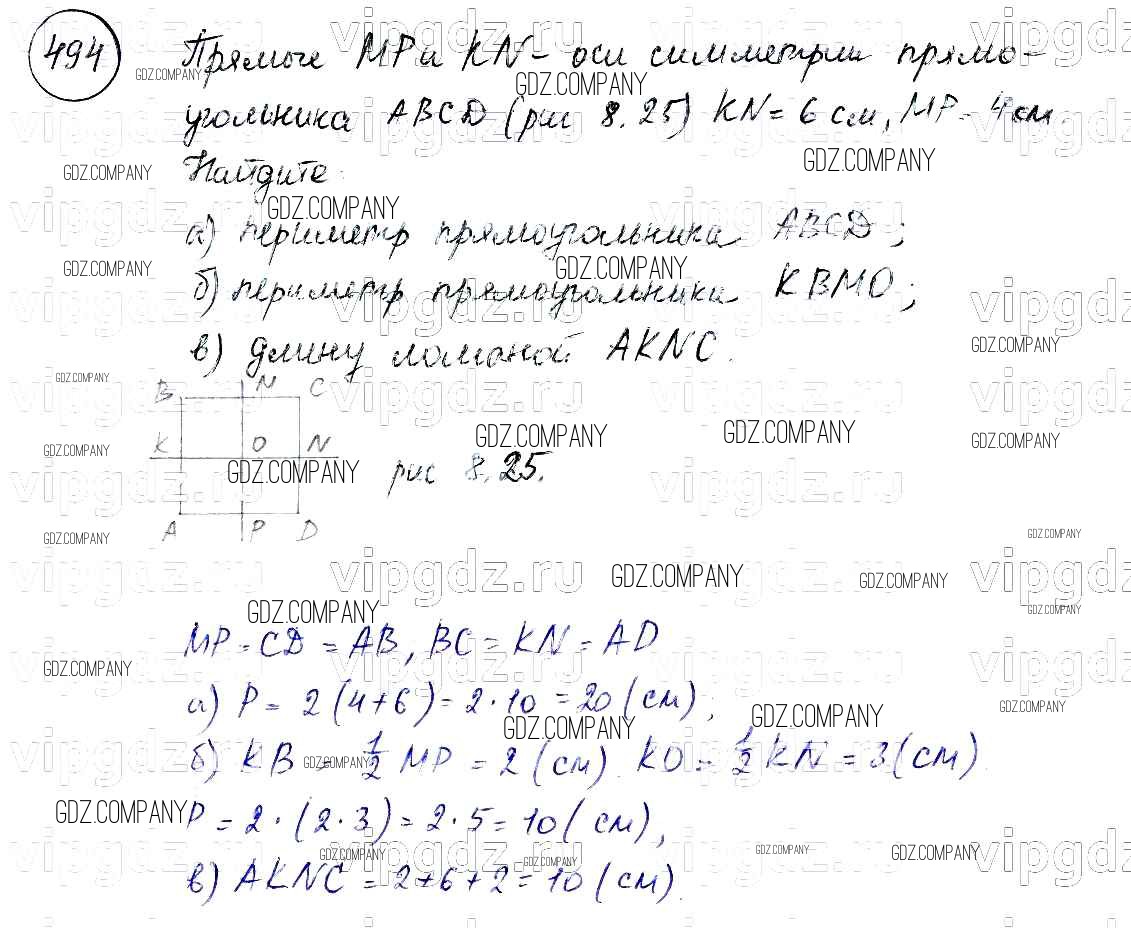 494
Прямые MP и KN - оси симметрии прямо-
угольника ABCD (рис 8.25) KN = 6 см, MP = 4 см.
Найдите:
а) периметр прямоугольника ABCD;
б) периметр прямоугольника KBMO;
в) длину ломаной AKNC.
B M C
K O N
рис 8.25.
A P D
MP = CD = AB, BC = KN = AD
а) P = 2 (4+6) = 2 · 10 = 20 (см),
б) KB = 1/2 MP = 2 (см). KO = 1/2 KN = 3 (см)
P = 2 · (2 · 3) = 2 · 5 = 10 (см),
в) AKNC = 2+6+2 = 10 (см).
GDZ.COMPANY
vipgdz.ru